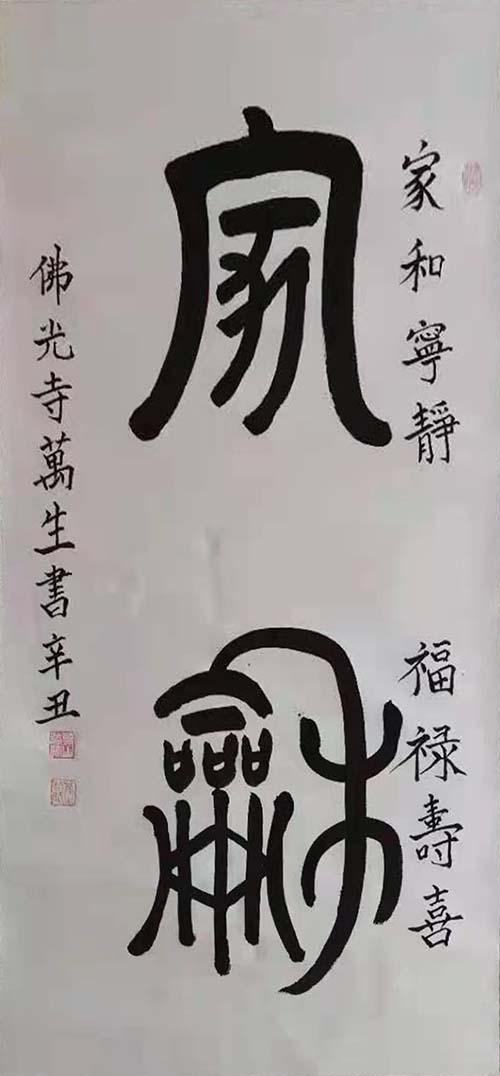 家和寧靜
福禄壽喜
家龢
佛光寺萬生書辛丑